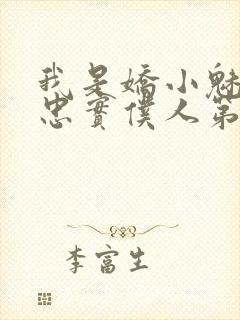 我是嬌小魅
忠實僕人第
李富生